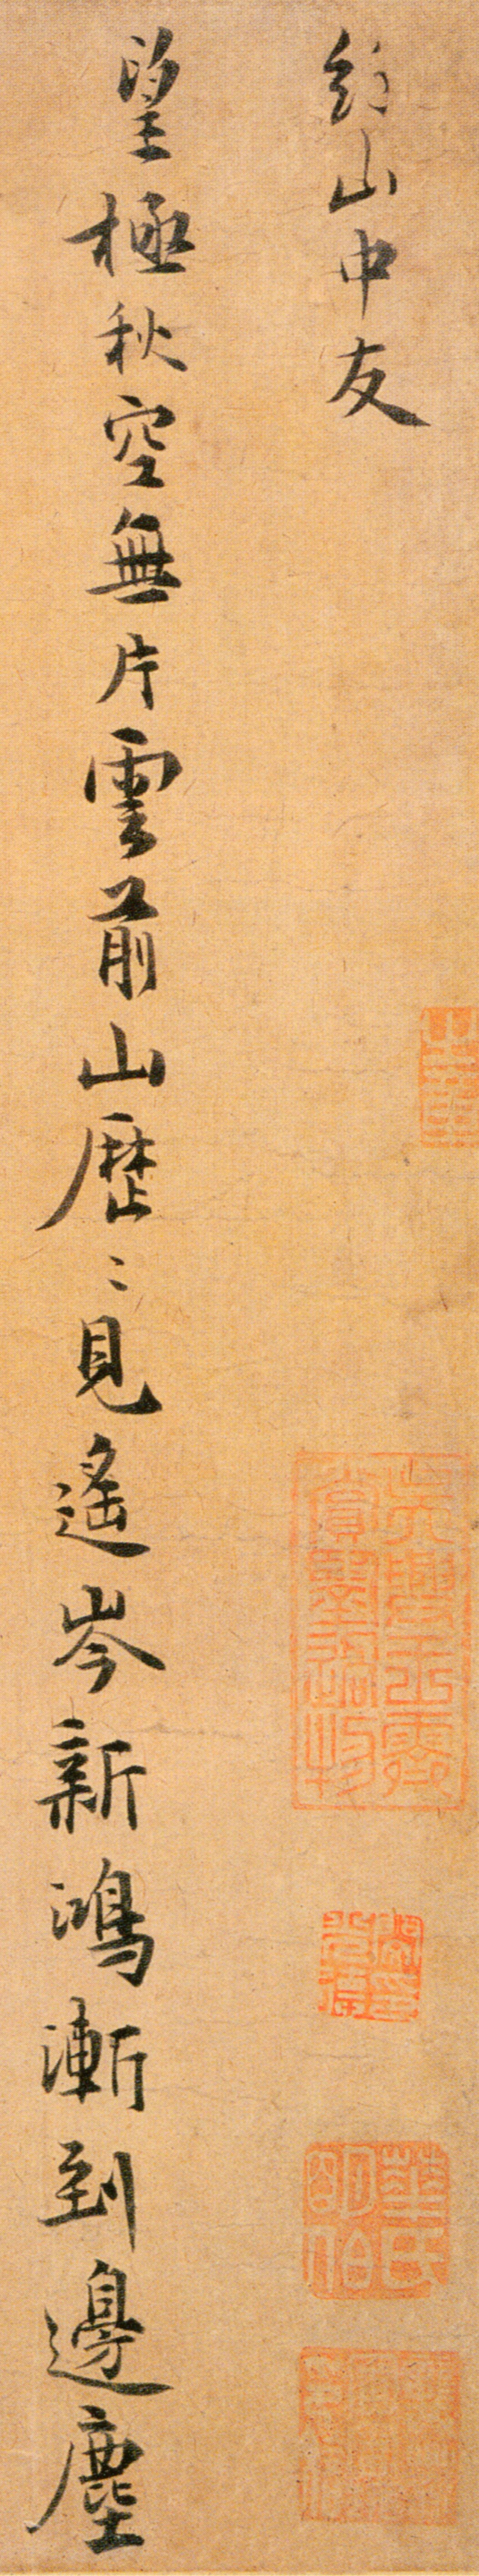 約山中友
望極秋空無片雲前山歷〻見遙岑新鴻漸到邊塵
華氏明伯